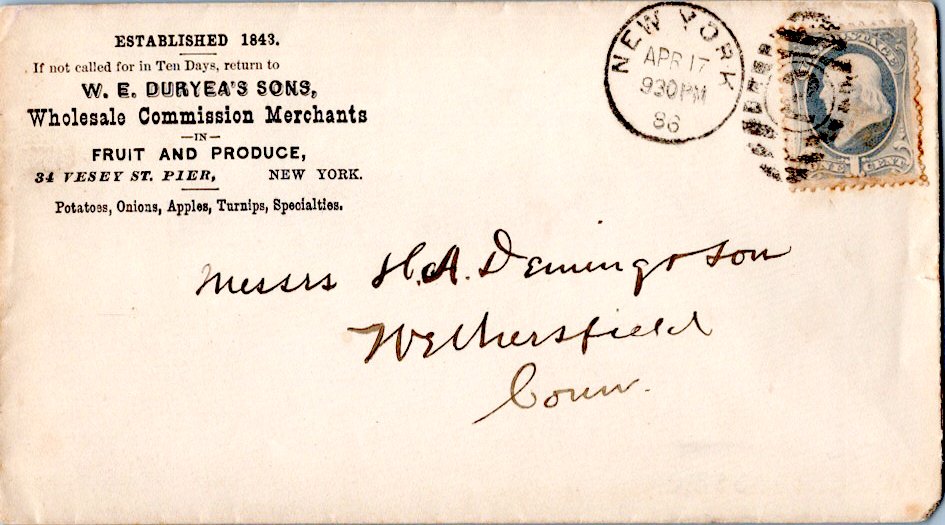 ESTABLISHED 1843.
If not called for in Ten Days, return to
W. E. DURYEA'S SONS,
Wholesale Commission Merchants
—IN—
FRUIT AND PRODUCE,
34 VESEY ST. PIER, NEW YORK.
Potatoes, Onions, Apples, Turnips, Specialties.
NEW YORK
APR 17
930PM
86
Messrs H. A. Deming & Son
Wethersfield
Conn.